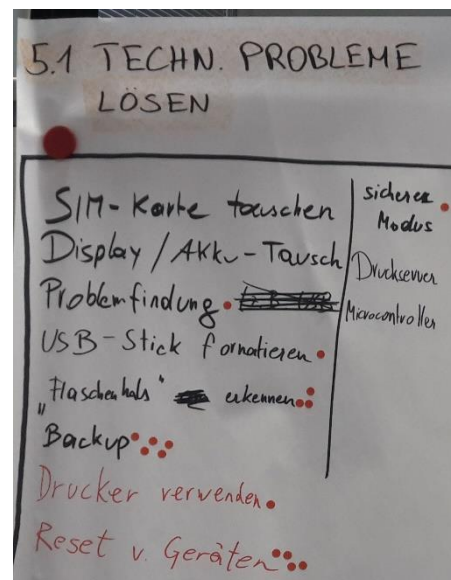 5.1 TECHN. PROBLEME
LÖSEN
SIM-Karte tauschen
Display / Akku-Tausch
Problemfindung
USB-Stick formatieren
"Flaschenhals" erkennen
Backup
Drucker verwenden
Reset v. Geräten
sicherer
Modus
Druckserver
Microcontroller